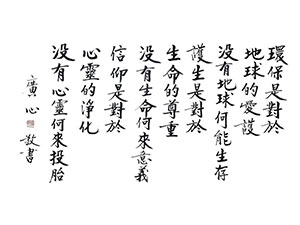 環保是對於
地球的愛護
沒有地球何能生存
護生是對於
生命的尊重
沒有生命何來意義
信仰是對於
心靈的淨化
沒有心靈何來投胎
廣心
敬書